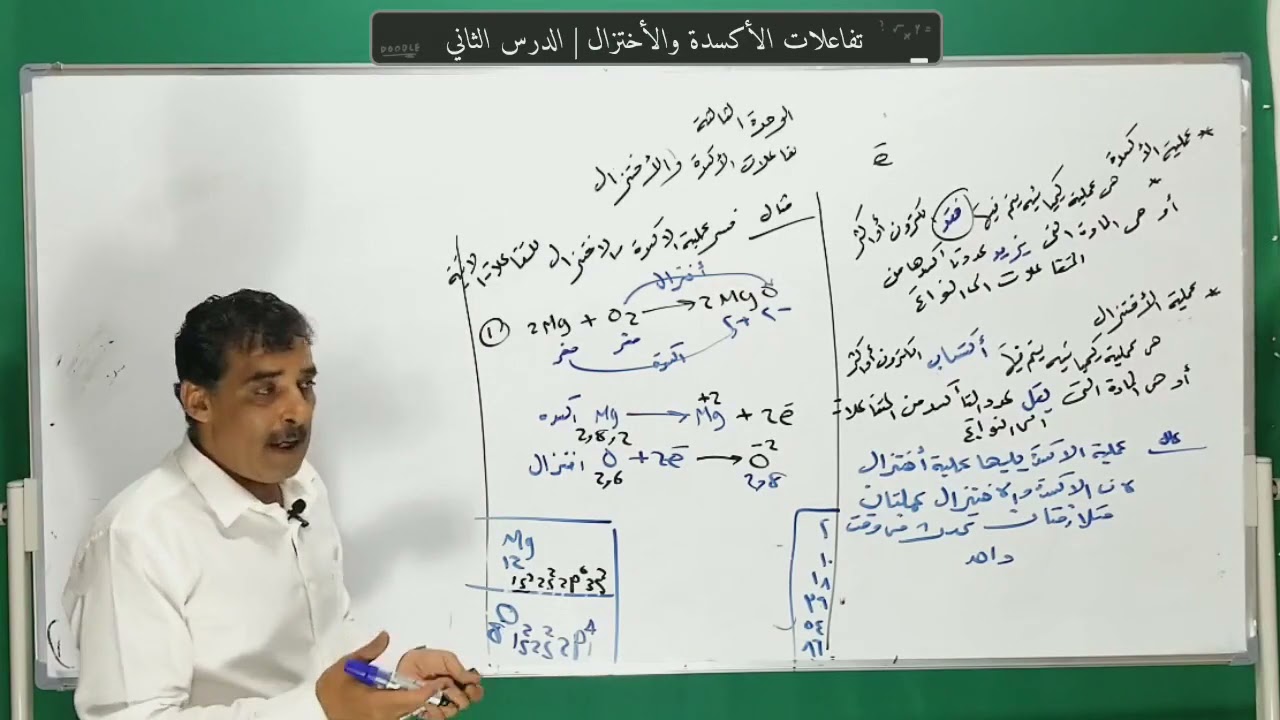 تفاعلات الأكسدة والأختزال | الدرس الثاني
DOODLE
الوحدة الثالثة
تفاعلات الأكسدة والأختزال
ē
* عملية الأكسدة
هي عملية كيميائية يتم فيها فقد الكترون أو أكثر
أو هي المادة التي يزيد عدد تأكسدها من
التفاعلات الى النواتج
* عملية الأختزال
هي عملية كيميائية يتم فيها أكتساب الكترون أو أكثر
أو هي المادة التي يقل عدد التأكسد من المتفاعلات
الى النواتج
علل عملية الاكسدة يليها عملية أختزال
لان الاكسدة والاختزال عمليتان
متلازمتان تحدث في وقت
واحد
مثال فسر عملية الاكسدة والاختزال للتفاعلات الاتية
أختزال
1) 2Mg + O2 → 2MgO
صفر صفر ٢+ ٢-
اكسدة
اكسده Mg → Mg+2 + 2ē
2,8,2
اختزال O + 2ē → O-2
2,6 2,8
Mg
12
1s2 2s2 2p6 3s2
8O
1s2 2s2 2p4
٢
١٠
١٨
٣٦
٥٤
٨٦